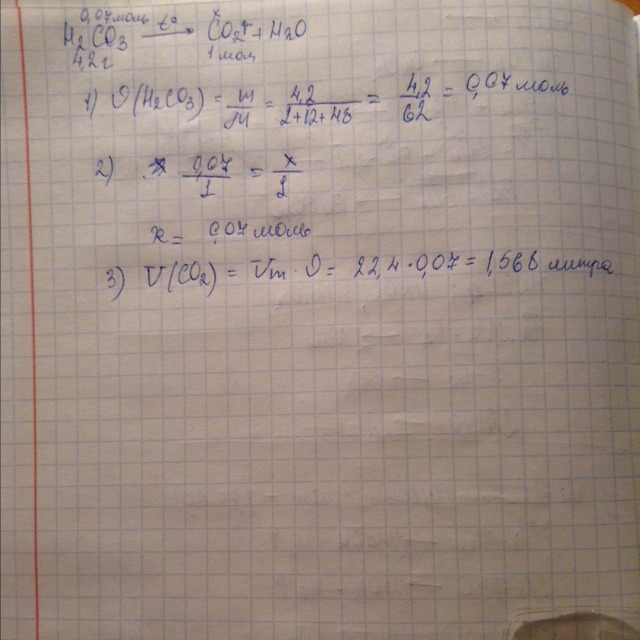 0,07 моль x
H₂CO₃ —t°→ CO₂↑ + H₂O
4,2 г 1 моль
1) ϑ(H₂CO₃) = m/M = 4,2/2+12+48 = 4,2/62 = 0,07 моль
2) 0,07/1 = x/1
x = 0,07 моль
3) V(CO₂) = Vm · ϑ = 22,4 · 0,07 = 1,568 литра